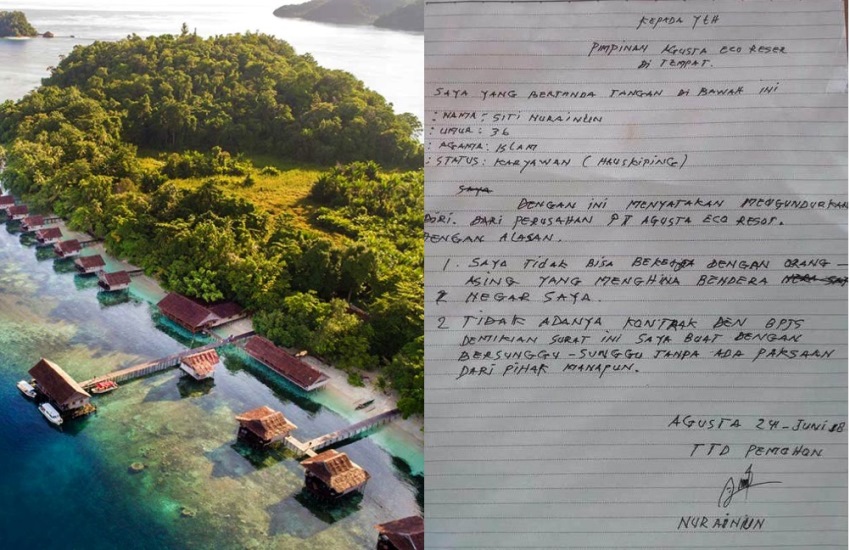 KEPADA YTH
PIMPINAN AGUSTA ECO RESER
DI TEMPAT.
SAYA YANG BERTANDA TANGAN DI BAWAH INI
: NAMA : SITI NURAINUN
: UMUR : 36
: AGAMA : ISLAM
: STATUS : KARYAWAN ( HAUSKIPING )
SAYA
DENGAN INI MENYATAKAN MENGUNDURKAN
DIRI. DARI PERUSAHAN PT AGUSTA ECO RESOT.
DENGAN ALASAN.
1. SAYA TIDAK BISA BEKERJA DENGAN ORANG -
ASING YANG MENGHINA BENDERA
NEGAR SAYA.
2 TIDAK ADANYA KONTRAK DEN BPJS
DEMIKIAN SURAT INI SAYA BUAT DENGAN
BERSUNGGU - SUNGGU TANPA ADA PAKSAAN
DARI PIHAK MANAPUN.
AGUSTA 24 - JUNI 18
TTD PEMOHON
NURAINUN